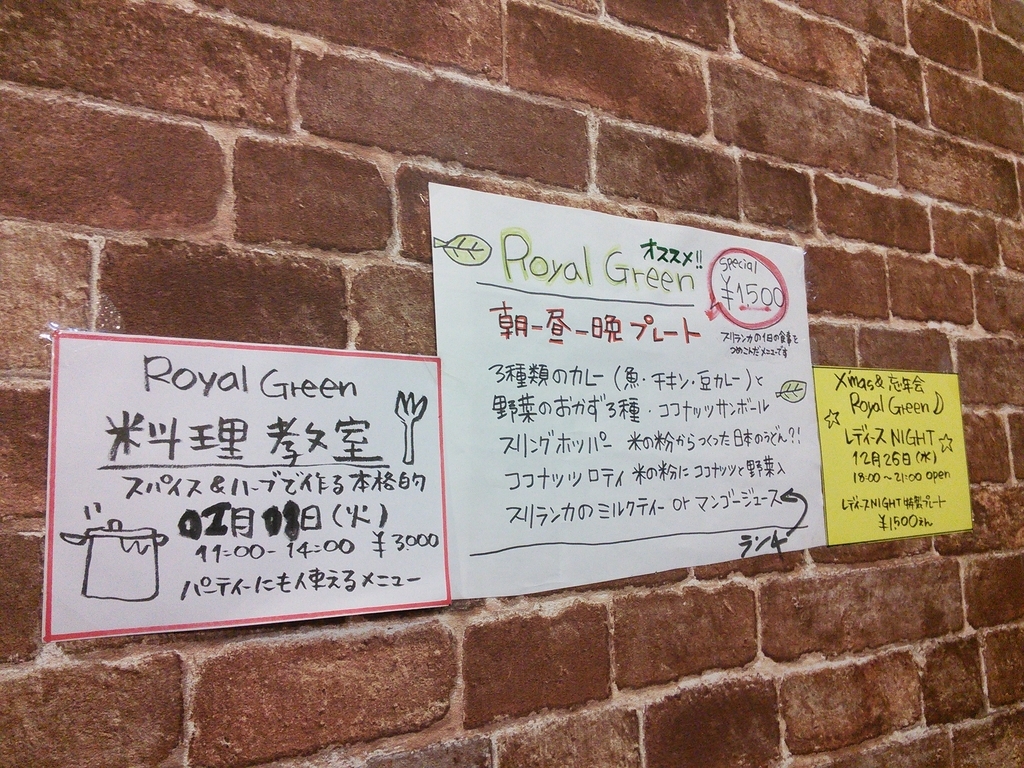 Royal Green
料理教室
スパイス&ハーブで作る本格的
01月 日(火)
11:00-14:00 ¥3.000
パーティーにも使えるメニュー
Royal Green オススメ!!
special
¥1,500
スリランカの1日の食事を
つめこんだメニューです
朝-昼-晩プレート
3種類のカレー(魚・チキン・豆カレー)と
野菜のおかず3種・ココナッツサンボール
スリングホッパー 米の粉からつくった日本のうどん?!
ココナッツロティ 米の粉にココナッツと野菜入
スリランカのミルクティー or マンゴージュース
ランチ
X'mas&忘年会
Royal Green♪
レディースNIGHT
12月26日(水)
18:00~21:00 open
レディースNIGHT特製プレート
¥1500